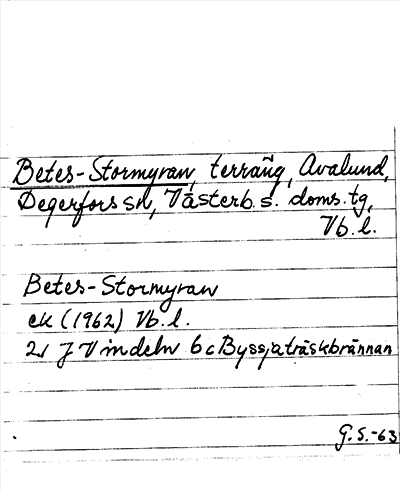 Betes-Stormyran, terräng, Avalund,
Degerfors sn, Västerb. s. doms. tg,
Vb. l.
Betes-Stormyran
ek (1962) Vb. l.
21 J Vindeln 6c Byssjaträskbrännan
G. S. -63